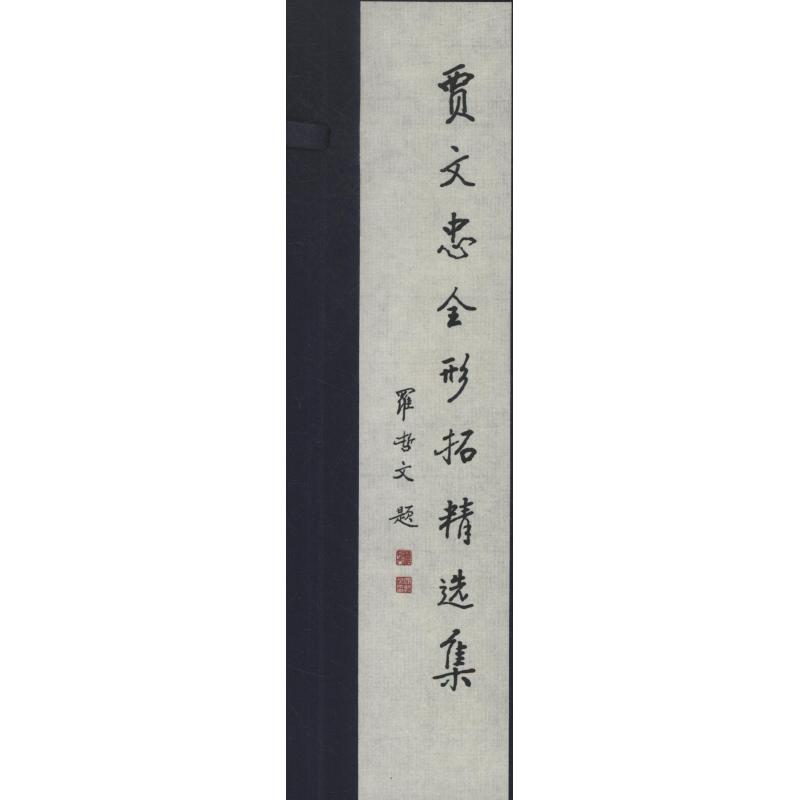 贾文忠全形拓精选集
羅哲文 题